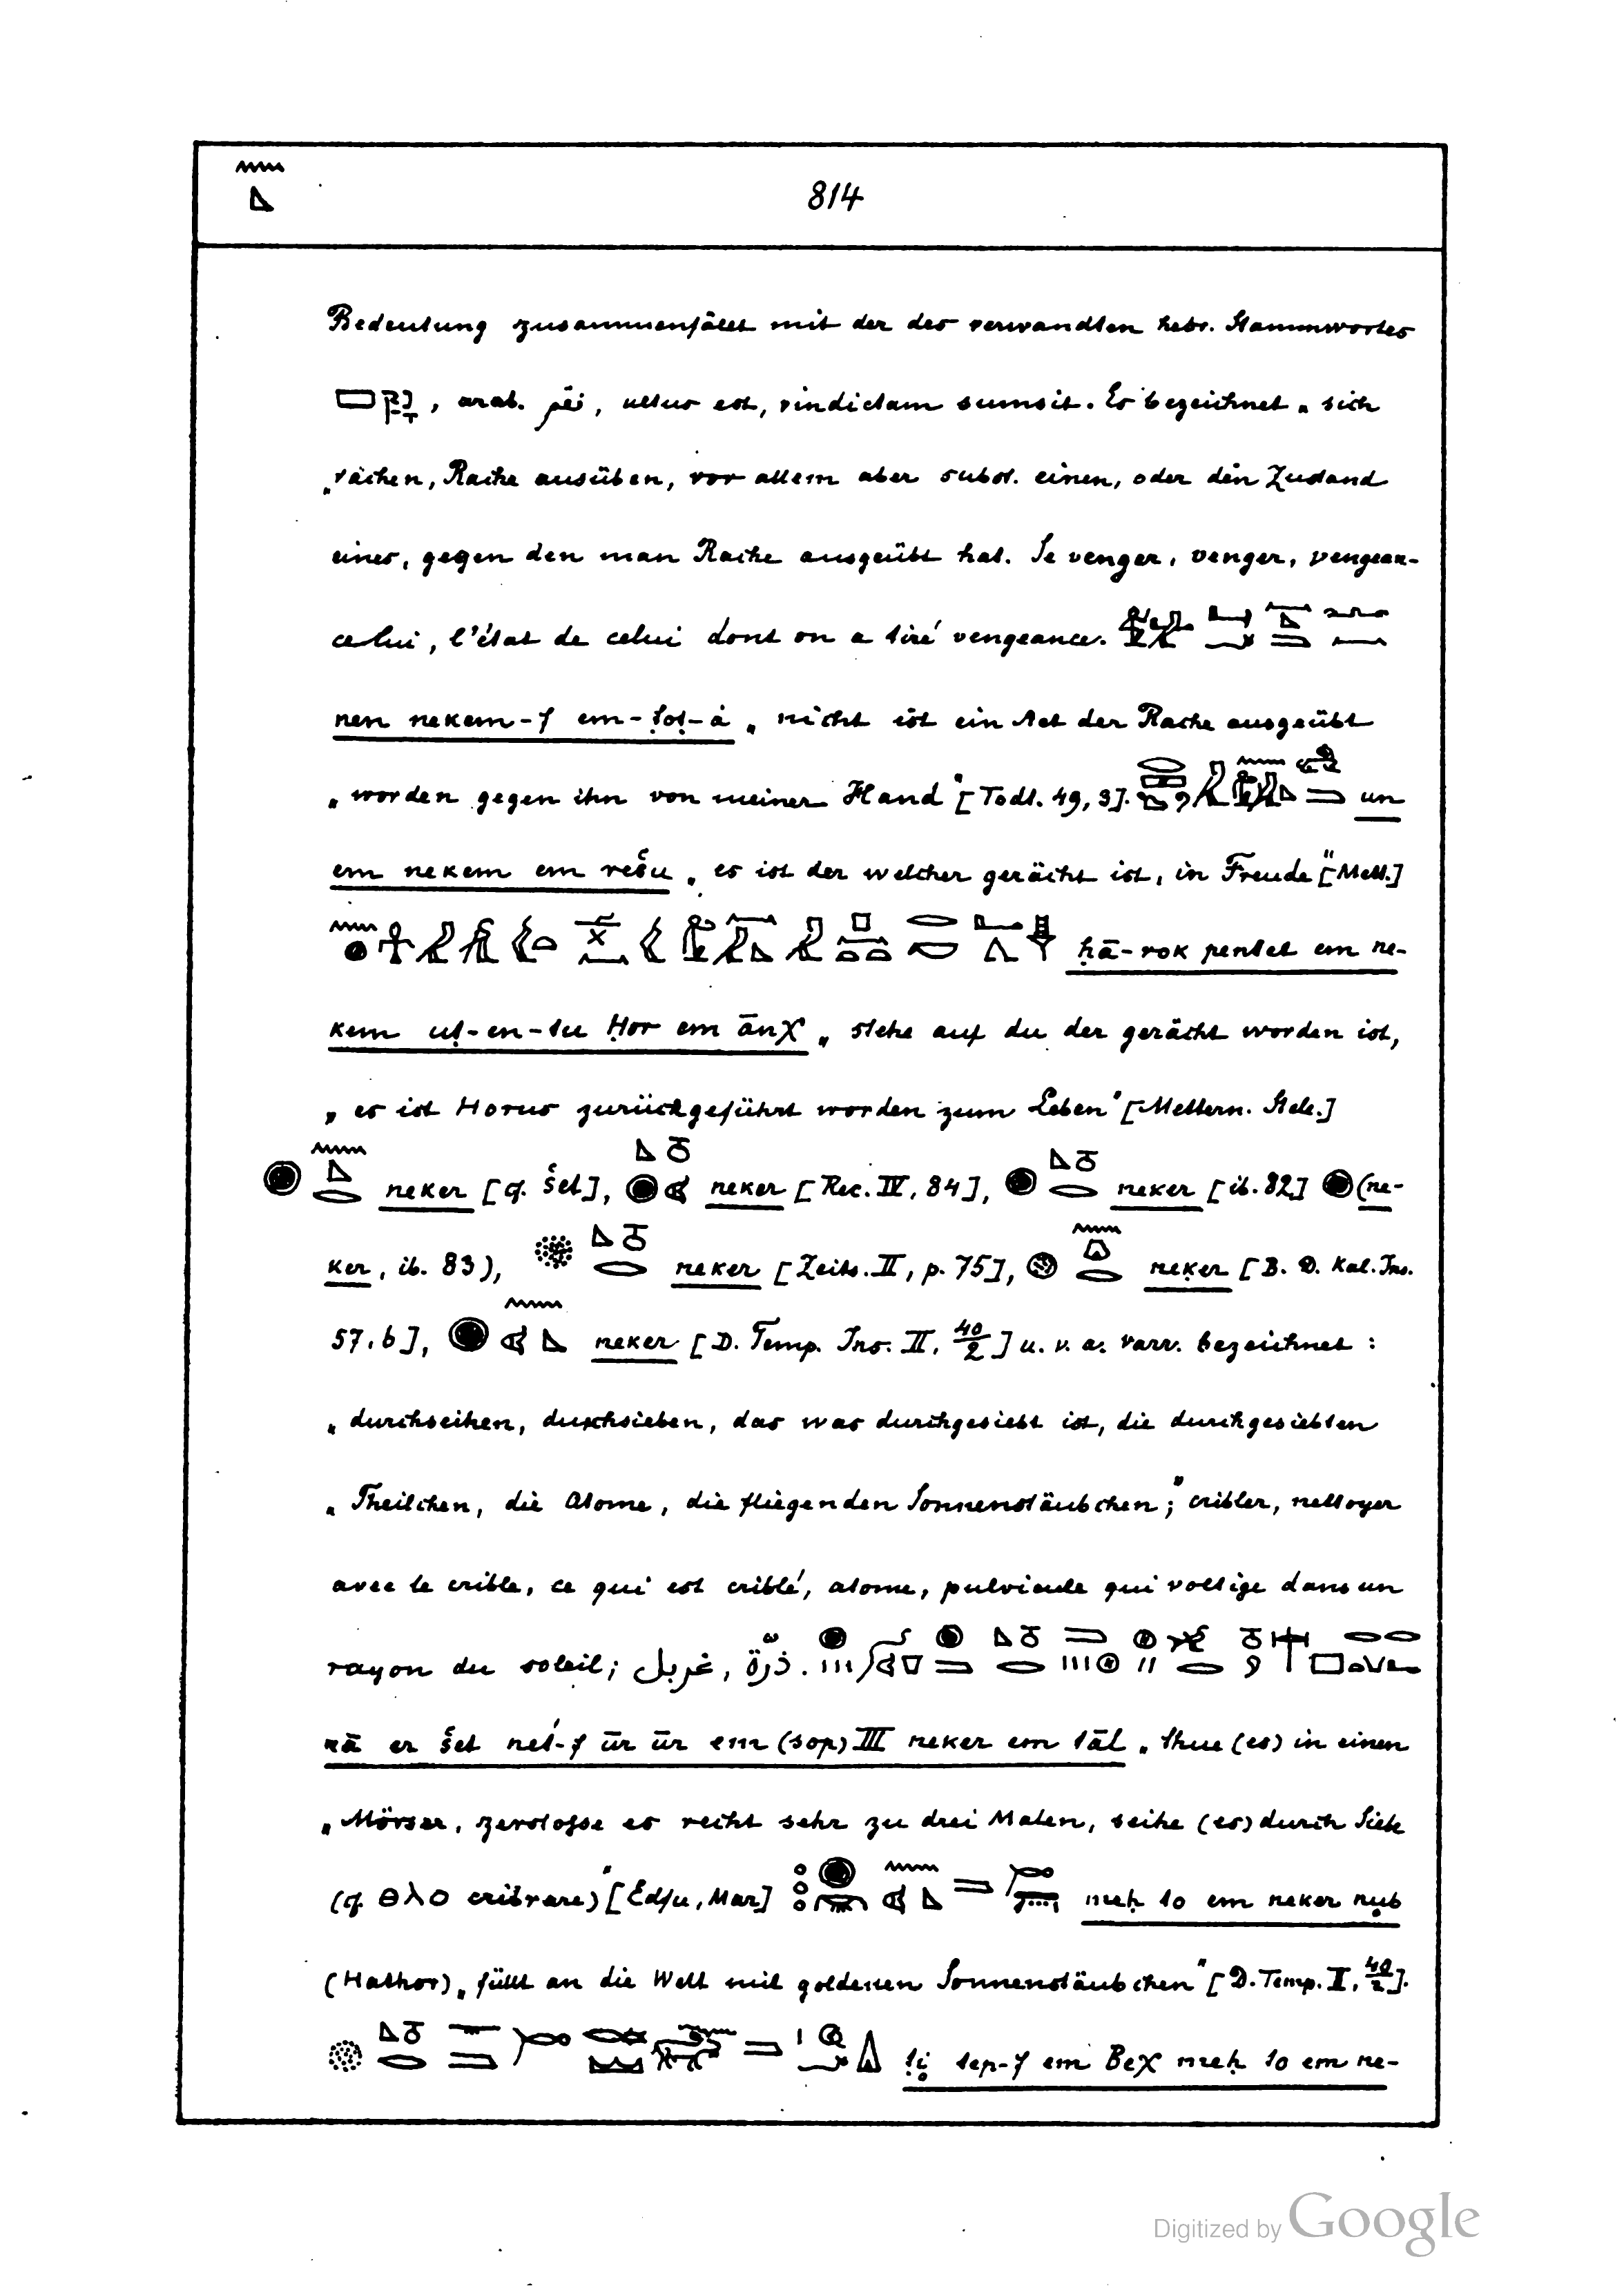 814
Bedeutung zusammenfällt mit der des verwandten hebr. Stammwortes
נָקַם, arab. نقم, ultus est, vindictam sumsit. Es bezeichnet „sich
„rächen, Rache ausüben, vor allem aber subst. einen, oder den Zustand
eines, gegen den man Rache ausgeübt hat. Se venger, venger, vengean-
celui, l'état de celui dont on a tiré vengeance.
nen nekem-f em-ṭoṭ-à „nicht ist ein Act der Rache ausgeübt
„worden gegen ihn von meiner Hand" [Todt. 49, 3]. un
em nekem em rešu „es ist der welcher gerächt ist, in Freude" [Mett.]
ḥā-rok pentet em ne-
kem uṭ-en-tu Ḥor em ānχ „stehe auf du der gerächt worden ist,
„es ist Horus zurückgeführt worden zum Leben" [Mettern. Stele.]
neker [cf. šet], neker [Rec. IV, 84], neker [ib. 82] (ne-
ker, ib. 83), neker [Zeits. II, p. 75], neker [B. D. Kal. Ins.
57. b], neker [D. Temp. Ins. II, 40/2] u. v. a. varr. bezeichnet:
„durchseihen, durchsieben, das was durchgesiebt ist, die durchgesiebten
„Theilchen, die Atome, die fliegenden Sonnenstäubchen"; cribler, nettoyer
avec le crible, ce qui est criblé, atome, pulvicule qui voltige dans un
rayon du soleil; غربل, ذرّة.
rā er šet net́-f ūr ūr em (sop) III neker em tāl „thue (es) in einen
„Mörser, zerstosse es recht sehr zu drei Malen, seihe (es) durch Siebe
(cf. θλο cribrare)" [Edfu, Mar] meḥ to em neker nub
(Hathor) „füllt an die Welt mit goldenen Sonnenstäubchen" [D. Temp. II, 40/2].
tep-f em Beχ meḥ to em ne-
Digitized by Google